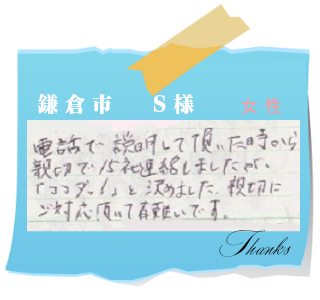 鎌倉市 S様 女性
電話で説明して頂いた時から
親切で15社連絡しましたが、
「ココダ!」と決めました。親切に
ご対応頂いて有難いです。
Thanks